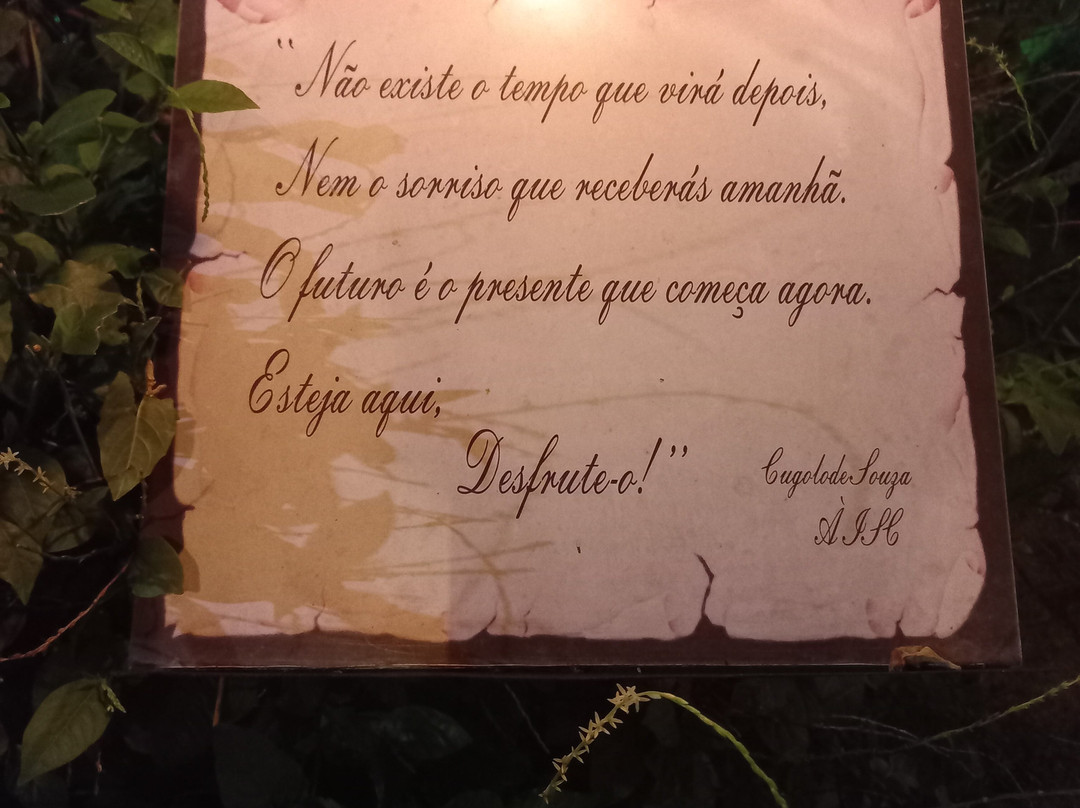 “Não existe o tempo que virá depois,
Nem o sorriso que receberás amanhã.
O futuro é o presente que começa agora.
Esteja aqui,
Desfrute-o!”
CugolodeSouza
À ISH